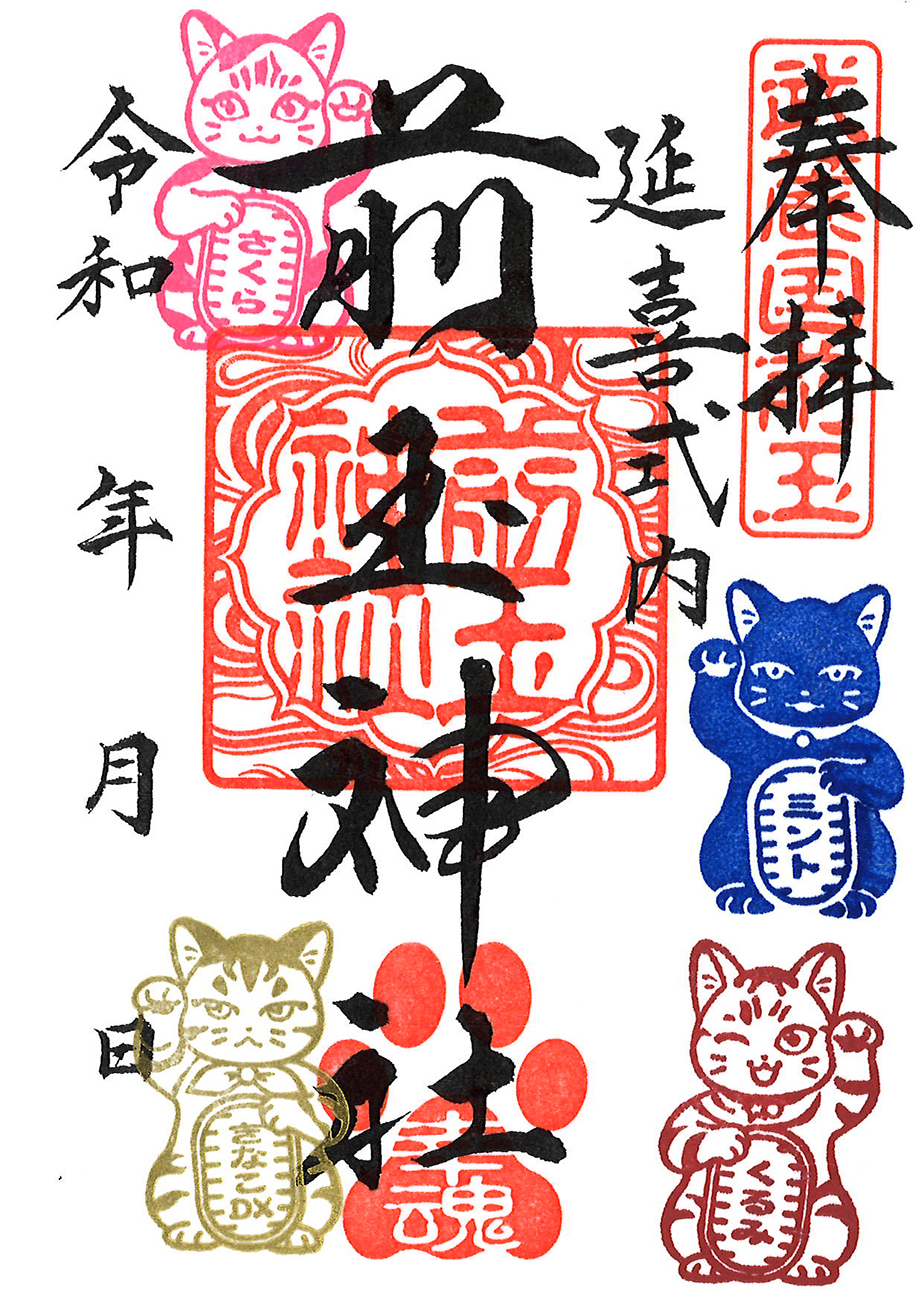 奉拝
武蔵国前玉
延喜式内
前玉神社
前玉神社
令和 年 月 日
さくら
ミント
くるみ
きなこDX
幸魂